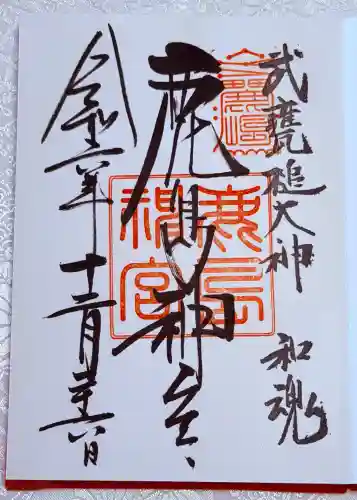 武甕槌大神 和魂
鹿島神宮
鹿島神宮
令和六年十二月二十六日